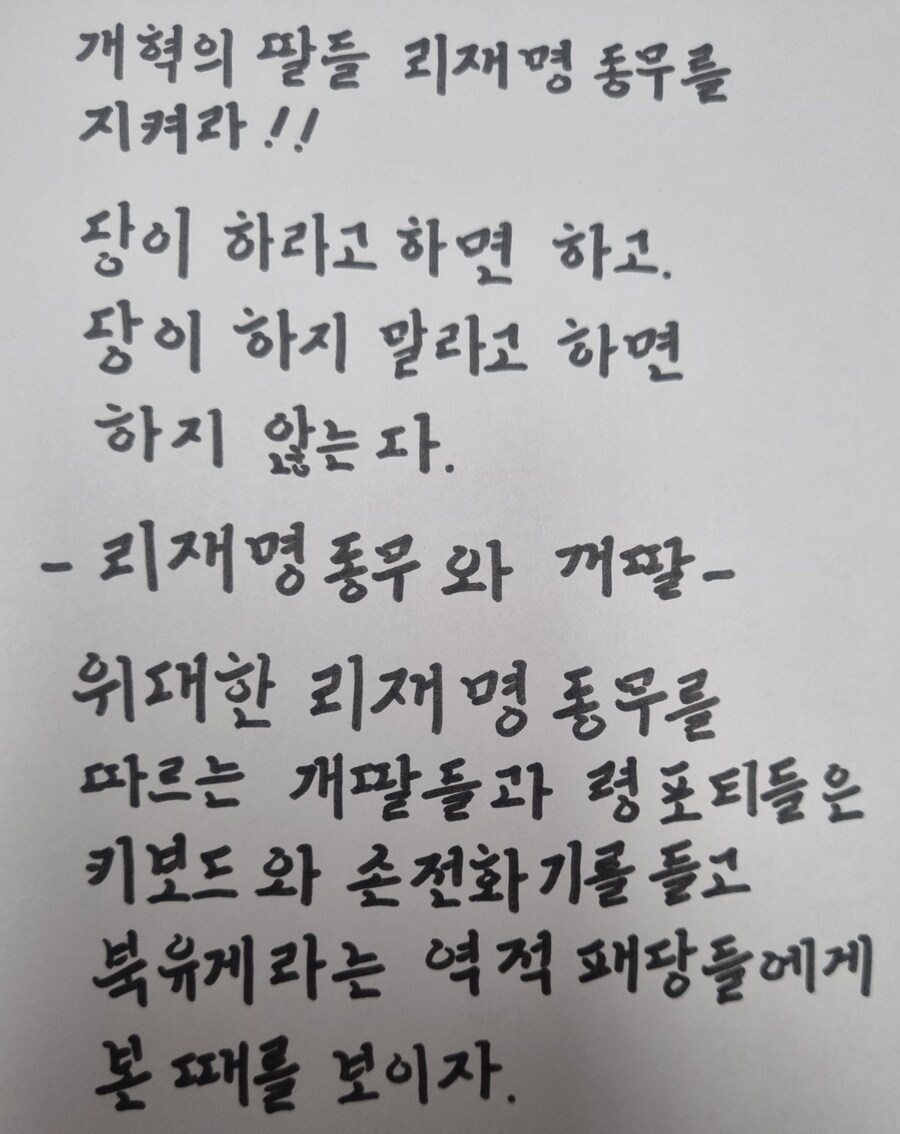 개혁의 딸들 리재명 동무를
지켜라!!
당이 하라고 하면 하고.
당이 하지 말라고 하면
하지 않는다.
- 리재명동무와 개딸-
위대한 리재명 동무를
따르는 개딸들과 령포티들은
키보드와 손전화기를 들고
북유게라는 역적패당들에게
본때를 보이자.